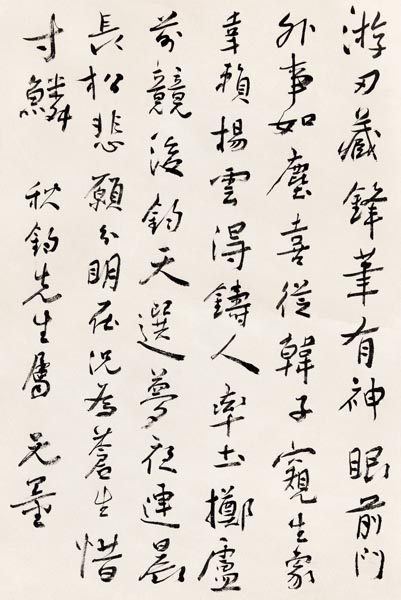 游刃藏鋒筆有神眼前門
外事如塵喜從韓子窺生象
幸賴揚雲得鑄人率土擲盧
前競後鈞天選夢夜連晨
長松悲願分明在況為蒼生惜
寸鱗 秋鈞先生屬 无量